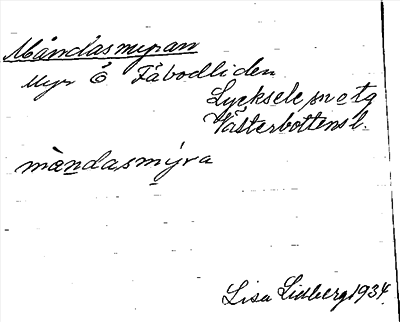 Måndasmyran
Myr Ö Fäbodliden
Lycksele sn o tg
Västerbottens l.
màndasmýra
Lisa Lidberg 1934.